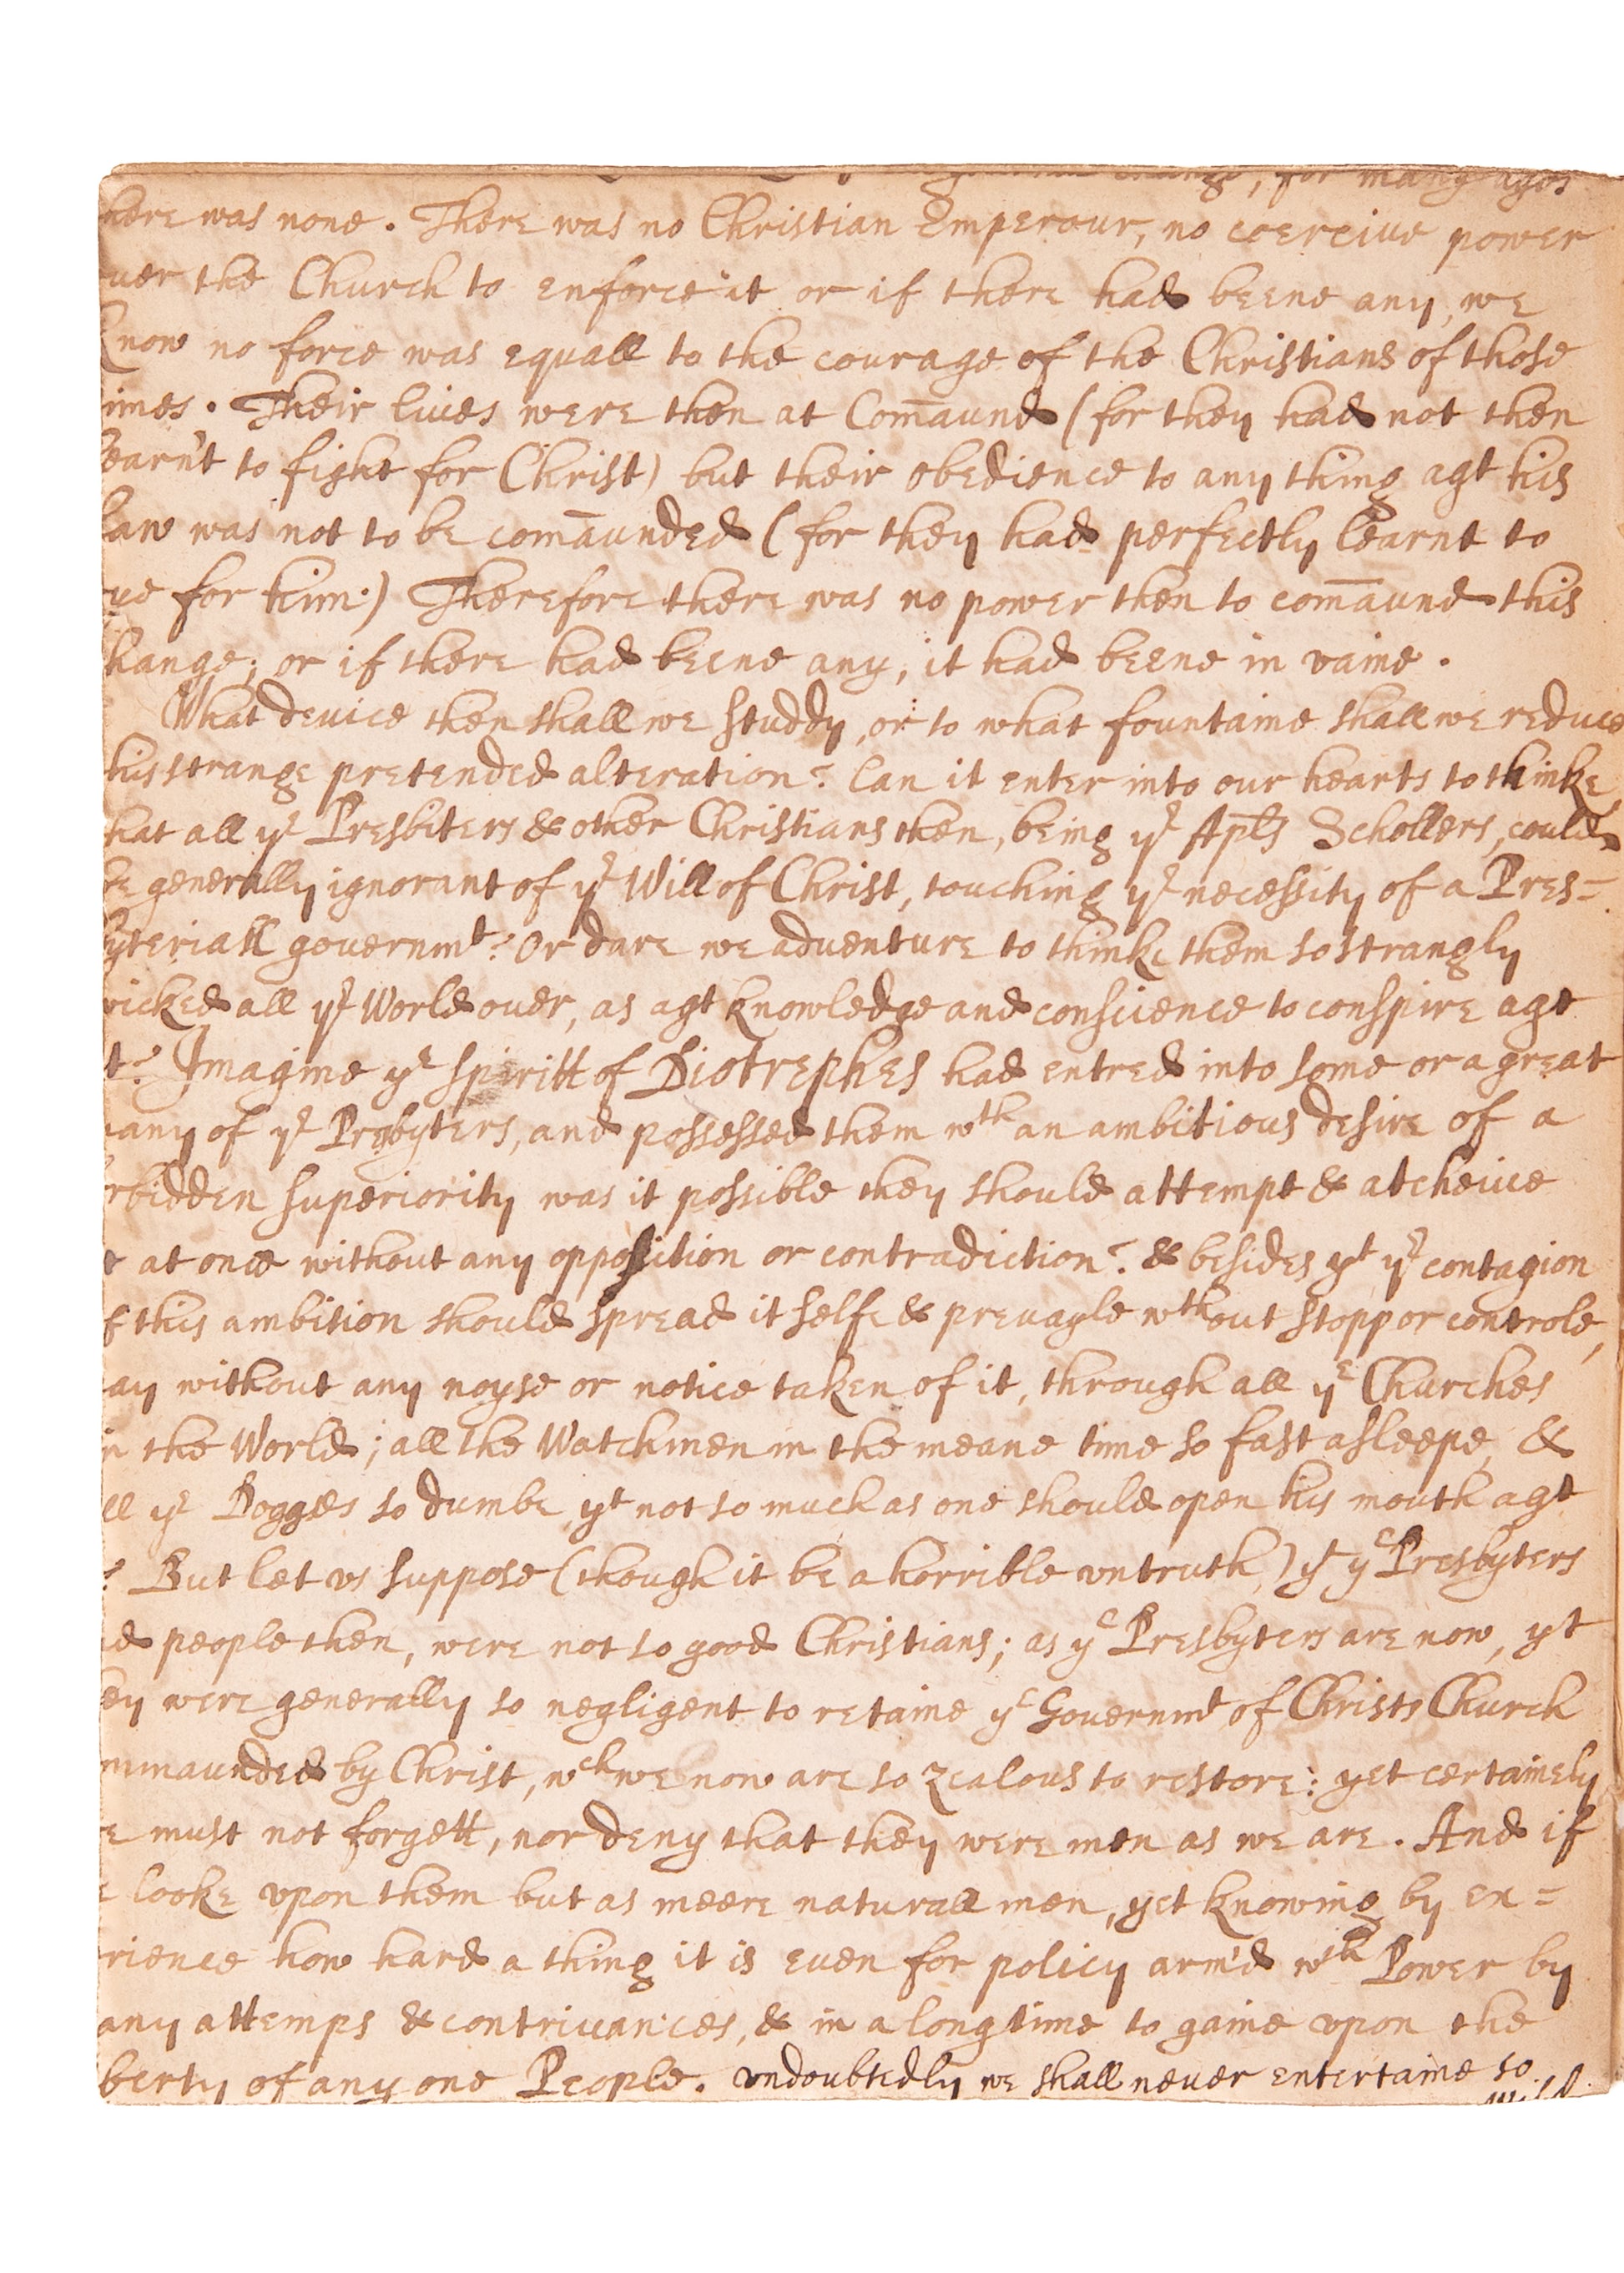 , for many ages
here was none. There was no Christian Emperour, no coercive power
uer the Church to enforce it or if there had beene any, we
know no force was equall to the courage of the Christians of those
imes. Their lives were then at Com̄aund (for they had not then
earn't to fight for Christ) but their obedience to any thing agt his
Law was not to be com̄aunded (for they had perfectly learnt to
ye for him.) Therefore there was no power then to com̄aund this
hange; or if there had beene any, it had beene in vaine.
What deuice then shall we studdy, or to what fountaine shall we reduce
his strange pretended alteration? Can it enter into our hearts to thinke
hat all ye Presbiters & other Christians then, being ye Apls Schollers, could
be generally ignorant of ye Will of Christ, touching ye necessity of a Pres=
byteriall governmt? Or dare we aduenture to thinke them so strangly
wicked all ye World ouer, as agt knowledge and conscience to conspire agt
t? Imagine ye spiritt of Diotrephes had entred into some or a great
any of ye Presbyters, and possessed them wth an ambitious desire of a
rbidden superiority was it possible they should attempt & atcheive
t at once without any opposition or contradiction? & besides yt ye contagion
f this ambition should spread it selfe & prevayle wthout stopp or controle,
ay without any noyse or notice taken of it, through all ye Churches
in the World; all the Watchmen in the meane time so fast asleepe, &
ll ye Dogges so dumbe yt not so much as one should open his mouth agt
? But let vs suppose (though it be a horrible vntruth,) yt ye Presbyters
nd people then, were not so good Christians; as ye Presbyters are now, yt
ey were generally so negligent to retaine ye Governmt of Christs Church
mmaunded by Christ, wch we now are so zealous to restore: yet certainely
e must not forgett, nor deny that they were men as we are. And if
e looke vpon them but as meere naturall men, yet knowing by ex=
rience how hard a thing it is even for policy arm'd wth Power by
any attemps & contrivances, & in a long time to gaine vpon the
berty of any one People. vndoubtedly we shall never entertaine so